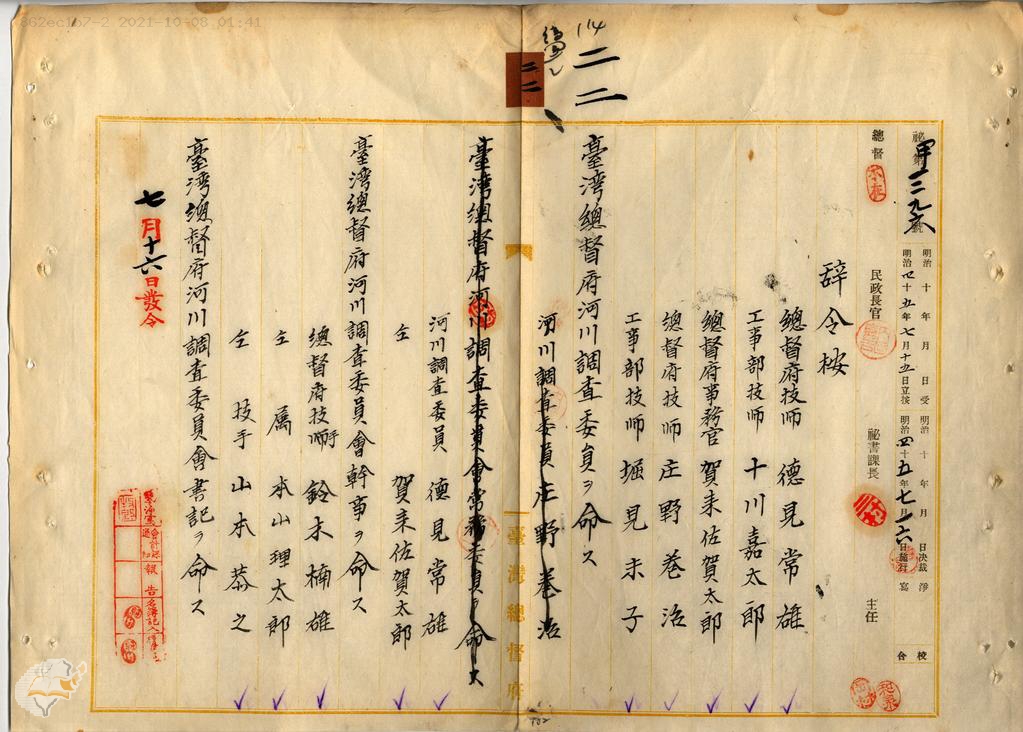 2021-10-08 01:41
114
二二
二二
秘第甲一三九六號
明治 十 年 月 日受
明治四十五年七月十五日立按
明治 十 年 月 日決裁
明治四十五年七月一六日施行
淨寫
校合
總督
民政長官
秘書課長
主任
辞令按
總督府技師 德見常雄
工事部技師 十川嘉太郎
總督府事務官 賀来佐賀太郎
總督府技師 庄野巻治
工事部技師 堀見末子
臺湾總督府河川調査委員ヲ命ス
河川調査委員 庄野巻治
臺湾總督府河川調査委員會常務委員ヲ命ス
河川調査委員 德見常雄
仝 賀来佐賀太郎
臺湾總督府河川調査委員會幹事ヲ命ス
總督府技手 鈴木楠雄
仝 属 本山理太郎
仝 技手 山本恭之
臺湾總督府河川調査委員會書記ヲ命ス
七月十六日發令
臺灣總督府
報告